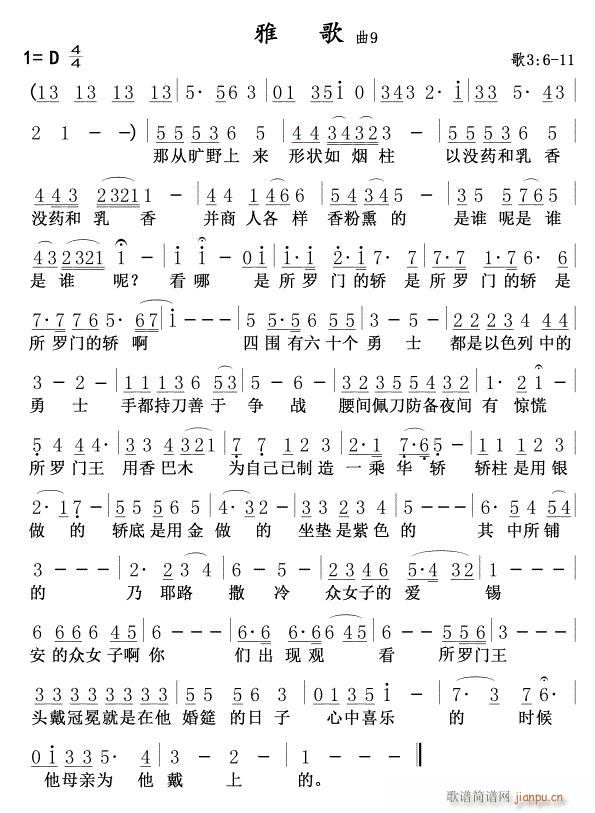 雅 歌 曲9
1= D 4/4 歌3:6-11
(13 13 13 13 | 5· 563 | 01 35i 0 | 0343 2· i | 343 23 |
2 1 - -) | 5 5 5 3 6 5 | 4 4 34323 | 05 5 5 3 6 5 |
那从旷野上 来 形状如 烟柱 以没药和乳 香
4 43 2321 1 - | 44 1 466 | 5 3434 3 - | 35 5765 |
没药和 乳 香 并商 人各样 香粉熏 的 是谁 呢是谁
43 2321 i - | i i - - | 0i i·i i | 2·i 76 i·i | 7· 765· |
是 谁 呢? 看 哪 是 所罗 门的轿 是 所罗 门的轿 是
7·7 76 5· 67 | i - - - | 5 5·56 55 | 3 - 5 - | 22 23 4 34 |
所罗 门的轿 啊 四 围 有六十个 勇 士 都是以色列中的
3 - 2 - | 11 136 53 | 6 - 5 - | 35 3535 6· | 2 i - |
勇 士 手都持刀善 于 争 战 腰间佩刀防备夜间 有 惊慌
5 4 44· | 2 34 321 | 7 7 12 2 | 2·1 7·65 | 1 22 23 |
所罗门王 用香巴木 为自己已制 造 一 乘 华 轿 轿柱是用银
2· 17 - | 55 56 5 | 6· 56 - | 66 65 4 | 3· 5 - | 5· 6 54 |
做 的 轿底是用金 做 的 坐垫是紫色 的 其 中所铺
3 - - - | 2· 23 3 | 6 - 5 - | 66 6· 5 4 32 |
的 乃 耶路 撒 冷 众女子的 爱 锡
6 66 6 45 | 6 - - - | 6·6 6·6 | 6·6 6456 | 5 - - - | 5 5635 |
安的众女子啊你 们 出 现 观 看 所罗门王
33 33 33 3 | 55 3 5 3 2 | 01 35 i | 7· 3 2 6· |
头戴冠冕就是在他 婚筵 的日 子 心中喜乐 的 时候
0i 335 4· | 3 - 2 - | 1 - - - ‖
他母亲为 他 戴 上 的。
歌谱简谱网
jianpu.cn